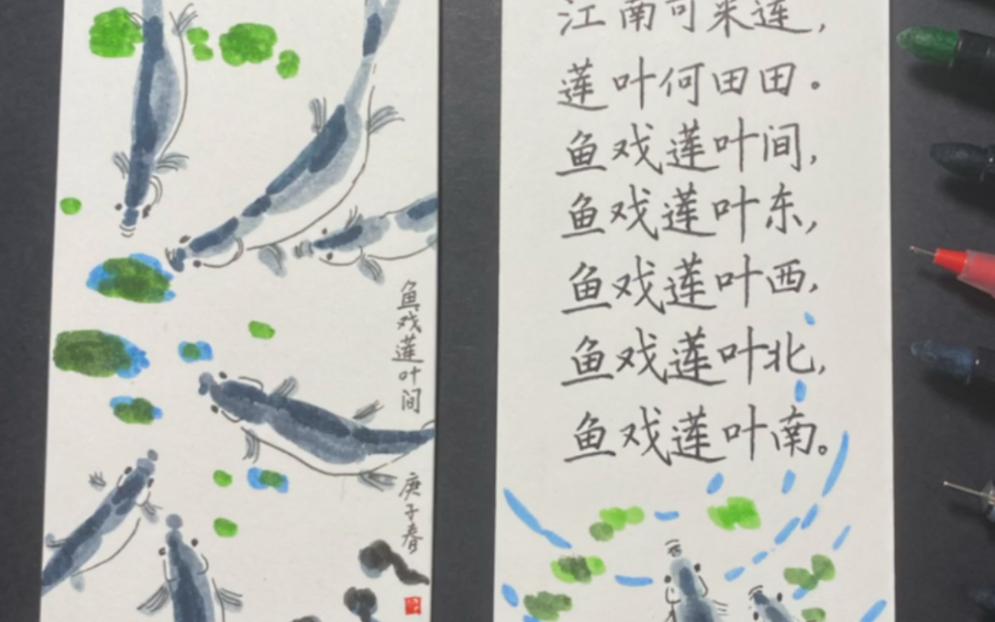 江南可采莲，
莲叶何田田。
鱼戏莲叶间，
鱼戏莲叶东，
鱼戏莲叶西，
鱼戏莲叶北，
鱼戏莲叶南。
鱼戏莲叶间
庚子春